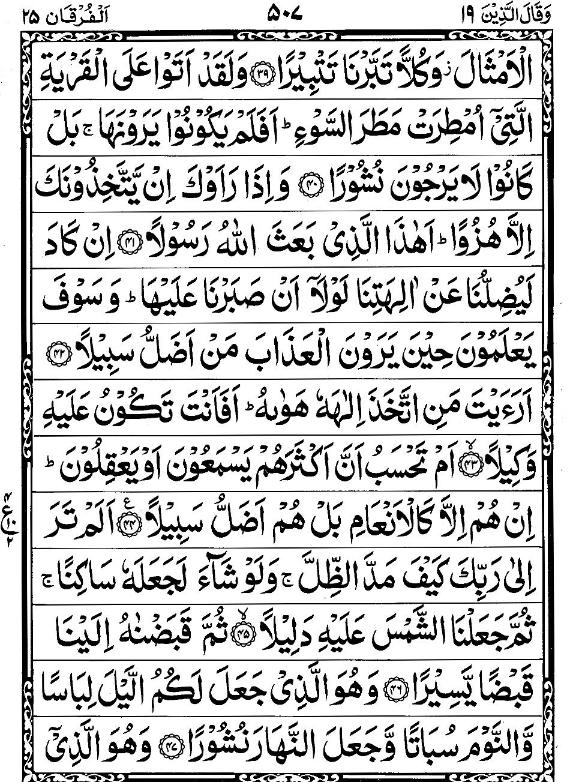 وَقَالَ الَّذِیْنَ ١٩ ۵۰۷ اَلْفُرْقَان ٢۵
الْاَمْثَالَ ز وَكُلًّا تَبَّرْنَا تَتْبِیْرًا ﴿۳۹﴾ وَلَقَدْ اَتَوْا عَلَی الْقَرْیَةِ
الَّتِیْۤ اُمْطِرَتْ مَطَرَ السَّوْءِ ؕ اَفَلَمْ یَكُوْنُوْا یَرَوْنَهَا ۚ بَلْ
كَانُوْا لَا یَرْجُوْنَ نُشُوْرًا ﴿۴۰﴾ وَاِذَا رَاَوْكَ اِنْ یَّتَّخِذُوْنَكَ
اِلَّا هُزُوًا ؕ اَهٰذَا الَّذِیْ بَعَثَ اللّٰهُ رَسُوْلًا ﴿۴۱﴾ اِنْ كَادَ
لَیُضِلُّنَا عَنْ اٰلِهَتِنَا لَوْلَاۤ اَنْ صَبَرْنَا عَلَیْهَا ؕ وَسَوْفَ
یَعْلَمُوْنَ حِیْنَ یَرَوْنَ الْعَذَابَ مَنْ اَضَلُّ سَبِیْلًا ﴿۴۲﴾
اَرَءَیْتَ مَنِ اتَّخَذَ اِلٰهَهٗ هَوٰىهُ ؕ اَفَاَنْتَ تَكُوْنُ عَلَیْهِ
وَكِیْلًا ﴿۴۳﴾ۙ اَمْ تَحْسَبُ اَنَّ اَكْثَرَهُمْ یَسْمَعُوْنَ اَوْ یَعْقِلُوْنَ ؕ
اِنْ هُمْ اِلَّا كَالْاَنْعَامِ بَلْ هُمْ اَضَلُّ سَبِیْلًا ﴿۴۴﴾ع اَلَمْ تَرَ
ع ۴ ١٠ ٢
اِلٰی رَبِّكَ كَیْفَ مَدَّ الظِّلَّ ۚ وَلَوْ شَآءَ لَجَعَلَهٗ سَاكِنًا ۚ
ثُمَّ جَعَلْنَا الشَّمْسَ عَلَیْهِ دَلِیْلًا ﴿۴۵﴾ۙ ثُمَّ قَبَضْنٰهُ اِلَیْنَا
قَبْضًا یَّسِیْرًا ﴿۴۶﴾ وَهُوَ الَّذِیْ جَعَلَ لَكُمُ الَّیْلَ لِبَاسًا
وَّالنَّوْمَ سُبَاتًا وَّجَعَلَ النَّهَارَ نُشُوْرًا ﴿۴۷﴾ وَهُوَ الَّذِیْۤ